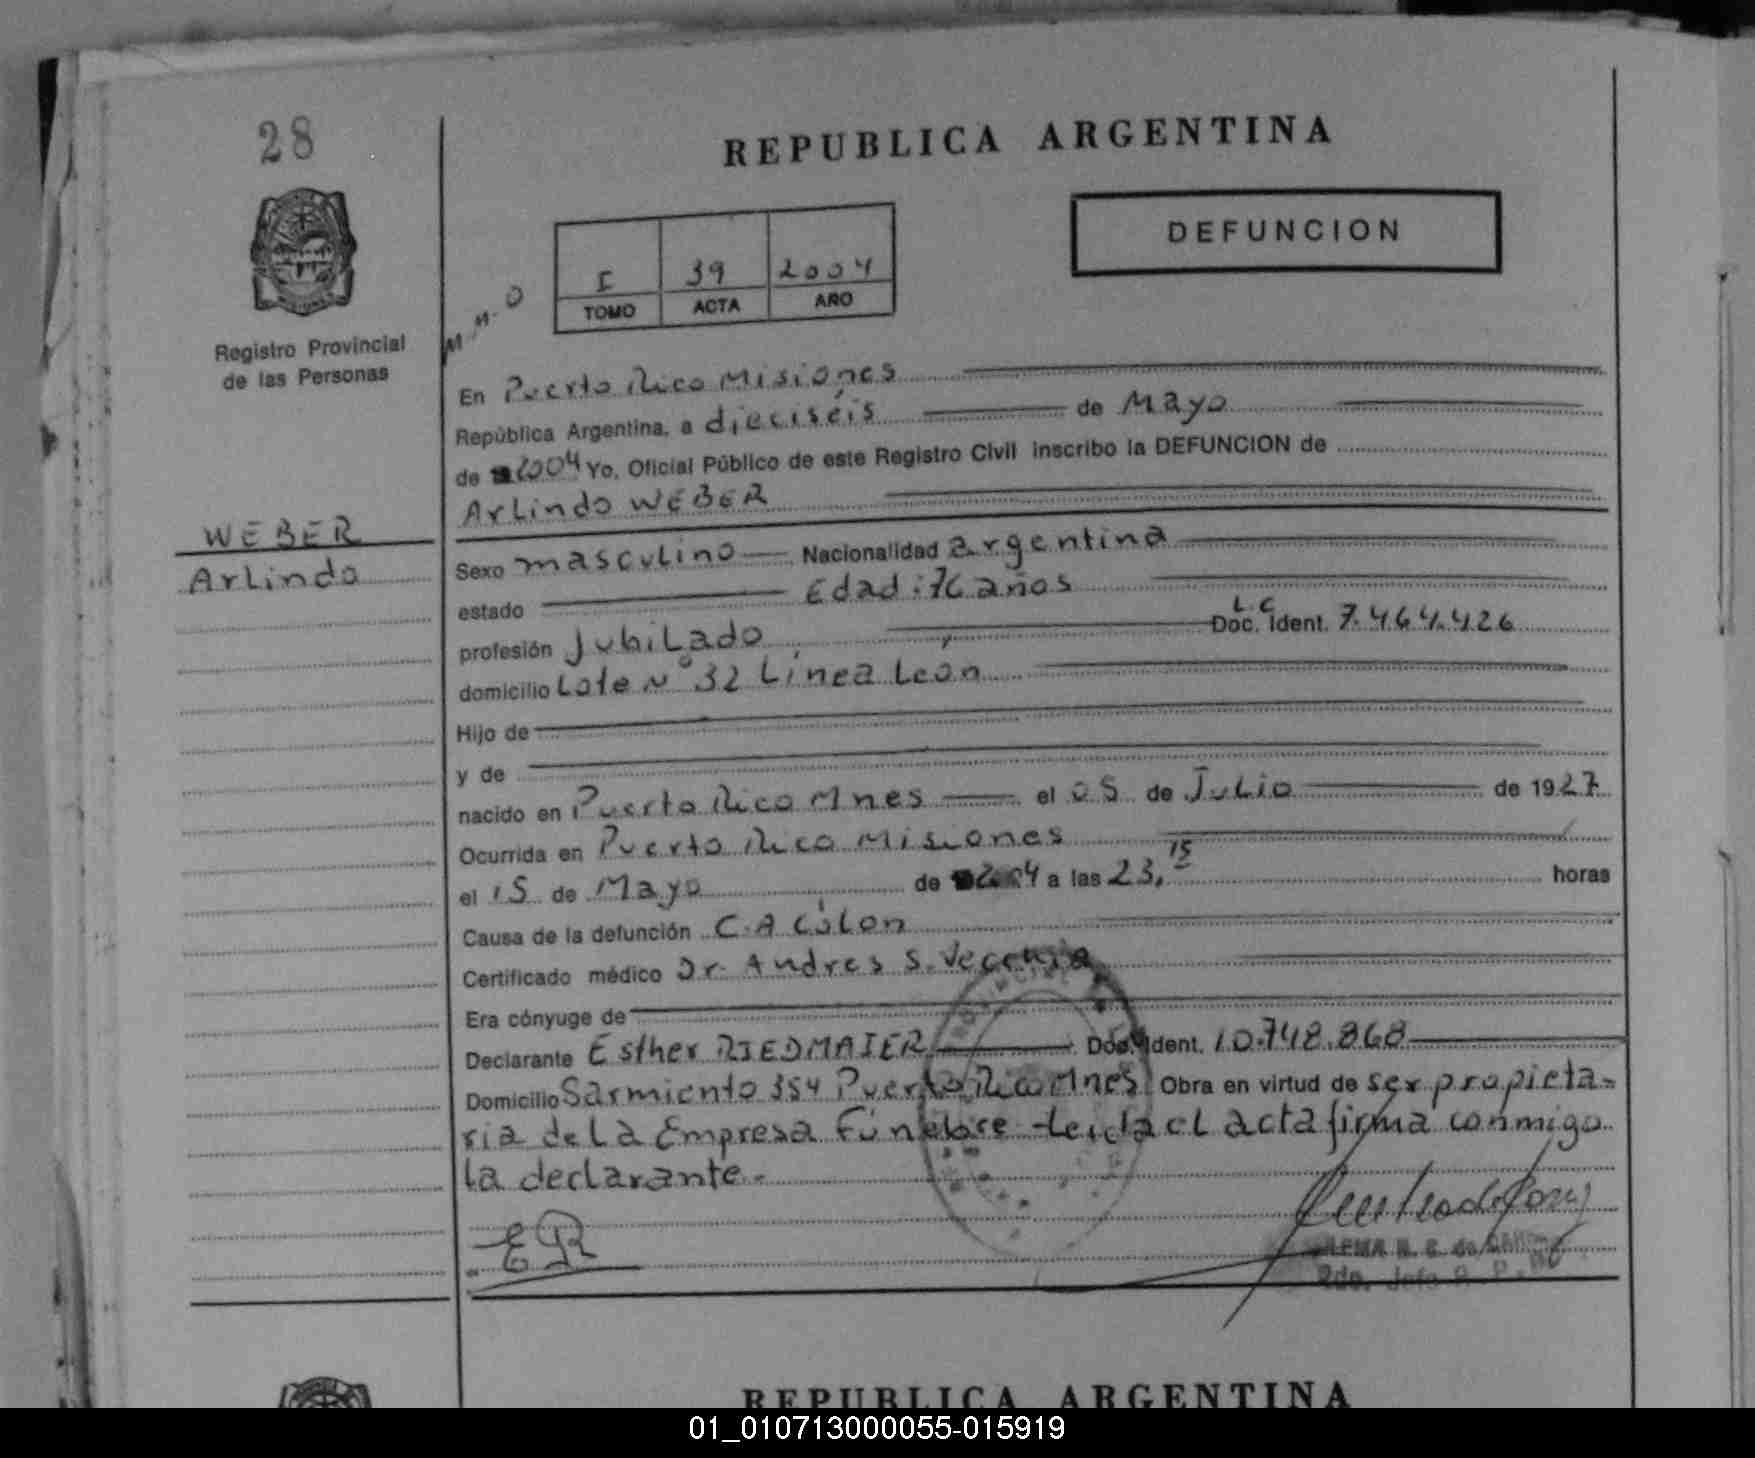 28
REPUBLICA ARGENTINA
DEFUNCION
I 39 2004
TOMO ACTA AÑO
M.M.O
Registro Provincial
de las Personas
En Puerto Rico Misiones
República Argentina, a dieciséis de Mayo
de 2004 Yo, Oficial Público de este Registro Civil inscribo la DEFUNCION de
Arlindo WEBER
WEBER
Arlindo
Sexo masculino Nacionalidad argentina
estado Edad: 76 años
profesión Jubilado L.C Doc. Ident. 7.464.426
domicilio Lote N° 32 Línea León
Hijo de
y de
nacido en Puerto Rico Mnes el 05 de Julio de 1927
Ocurrida en Puerto Rico Misiones
el 15 de Mayo de 2004 a las 23,15 horas
Causa de la defunción C.A Cólon
Certificado médico Dr. Andres S.
Era cónyuge de
Declarante Esther RIEDMAIER Doc. Ident. 10.748.868
Domicilio Sarmiento 354 Puerto Rico Mnes Obra en virtud de ser propieta-
ria de La Empresa Fúnebre - Leida el acta firma conmigo
la declarante.-
ER
2do. Jefe R. P.
REPUBLICA ARGENTINA
01_010713000055-015919